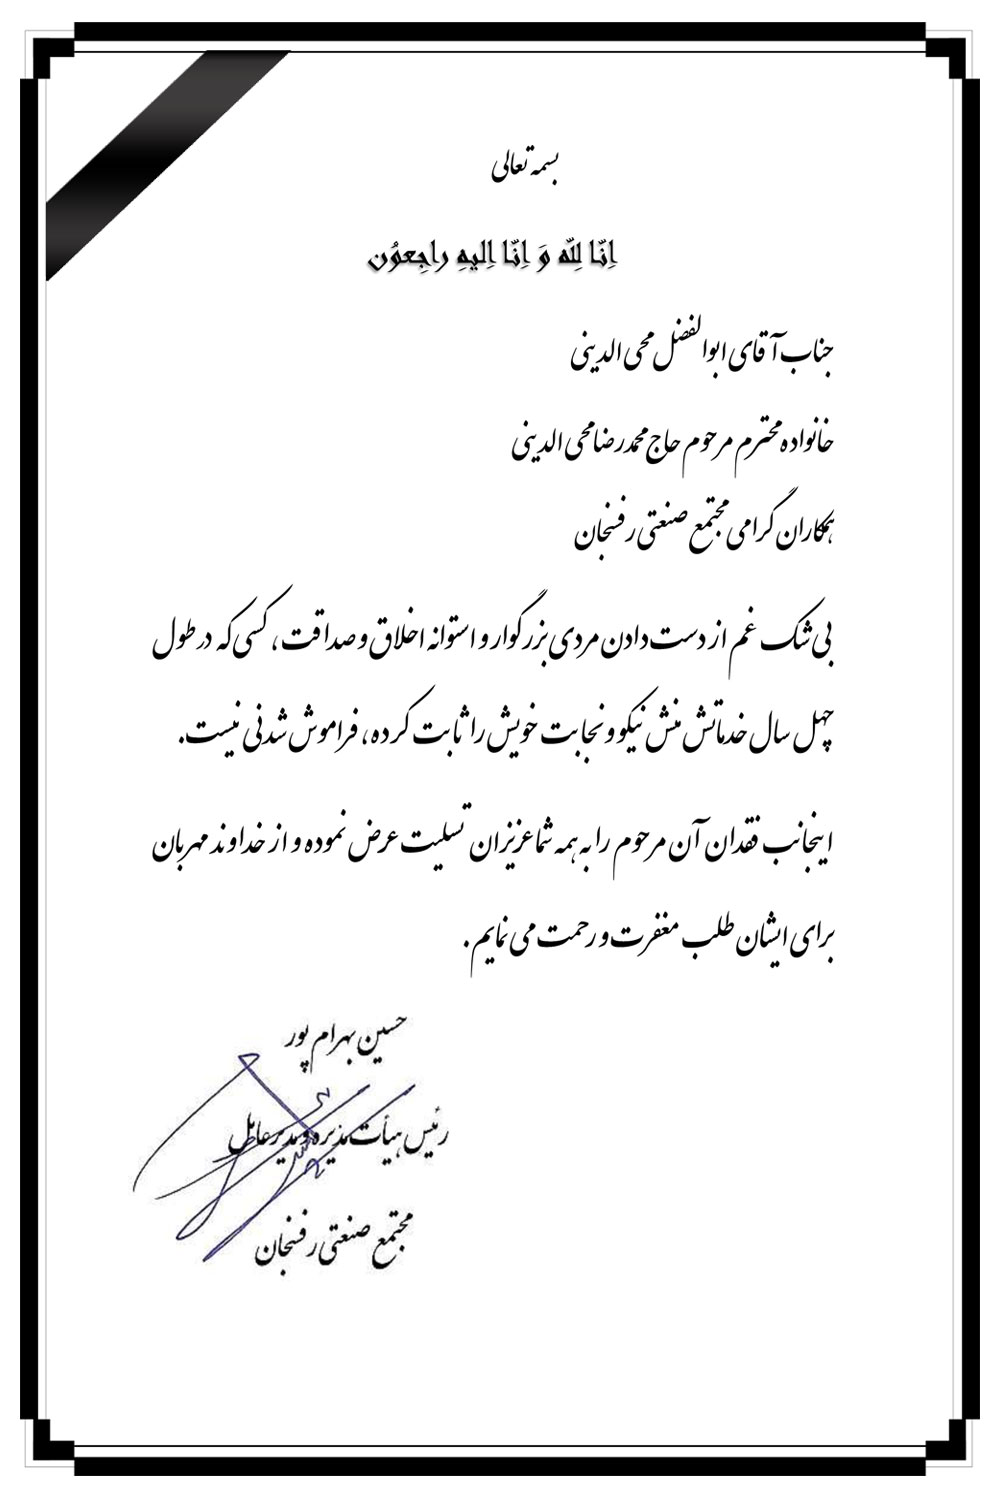 بسمه تعالی
اِنّا لِلّه وَ اِنّا اِلیهِ راجِعوُن
جناب آقای ابوالفضل محی الدینی
خانواده محترم مرحوم حاج محمدرضا محی الدینی
همکاران گرامی مجتمع صنعتی رفسنجان
بی شک غم از دست دادن مردی بزرگوار و استوانه اخلاق و صداقت، کسی که در طول
چهل سال خدماتش منش نیکو و نجابت خویش را ثابت کرده، فراموش شدنی نیست.
اینجانب فقدان آن مرحوم را به همه شما عزیزان تسلیت عرض نموده و از خداوند مهربان
برای ایشان طلب مغفرت و رحمت می نمایم.
حسین بهرام پور
رئیس هیأت مدیره و مدیرعامل
مجتمع صنعتی رفسنجان